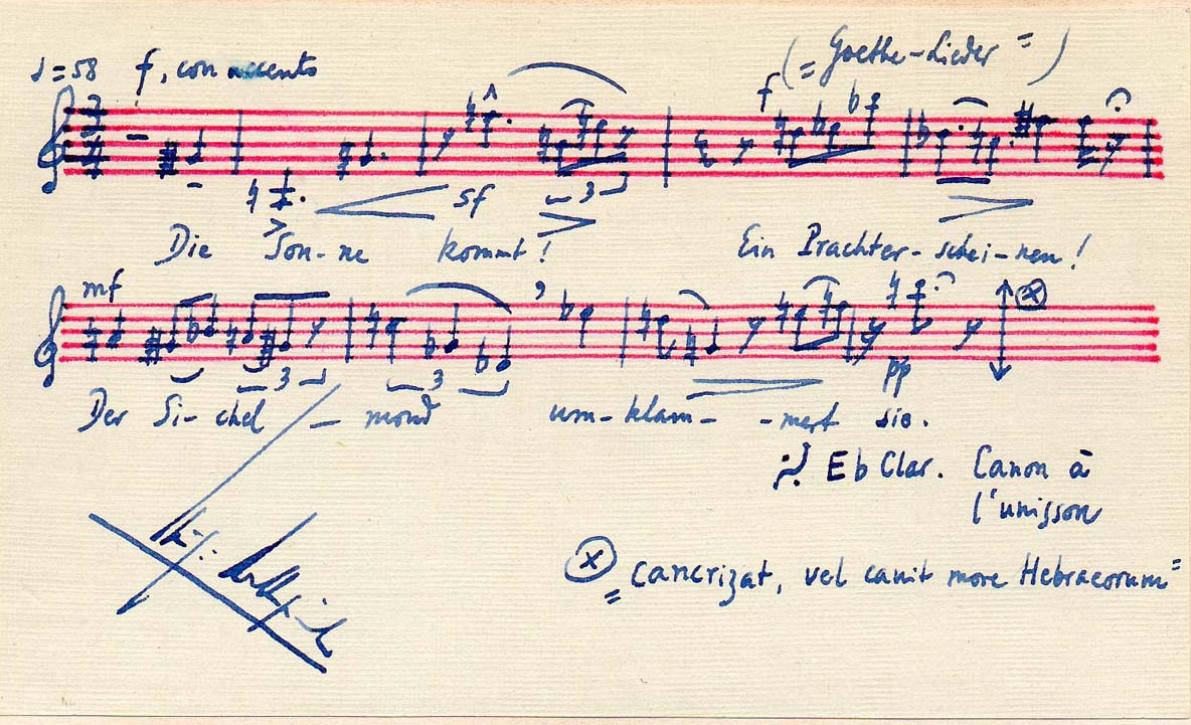 ♩=58 f, con accento („Goethe-Lieder")
f
sf
3
Die Son-ne kommt! Ein Prachter-schei-nen!
mf
3 3
pp
Der Si-chel - mond um-klam- -mert sie.
Eb Clar. Canon à
l'unisson
ⓧ „cancrizat, vel canit more Hebraeorum"